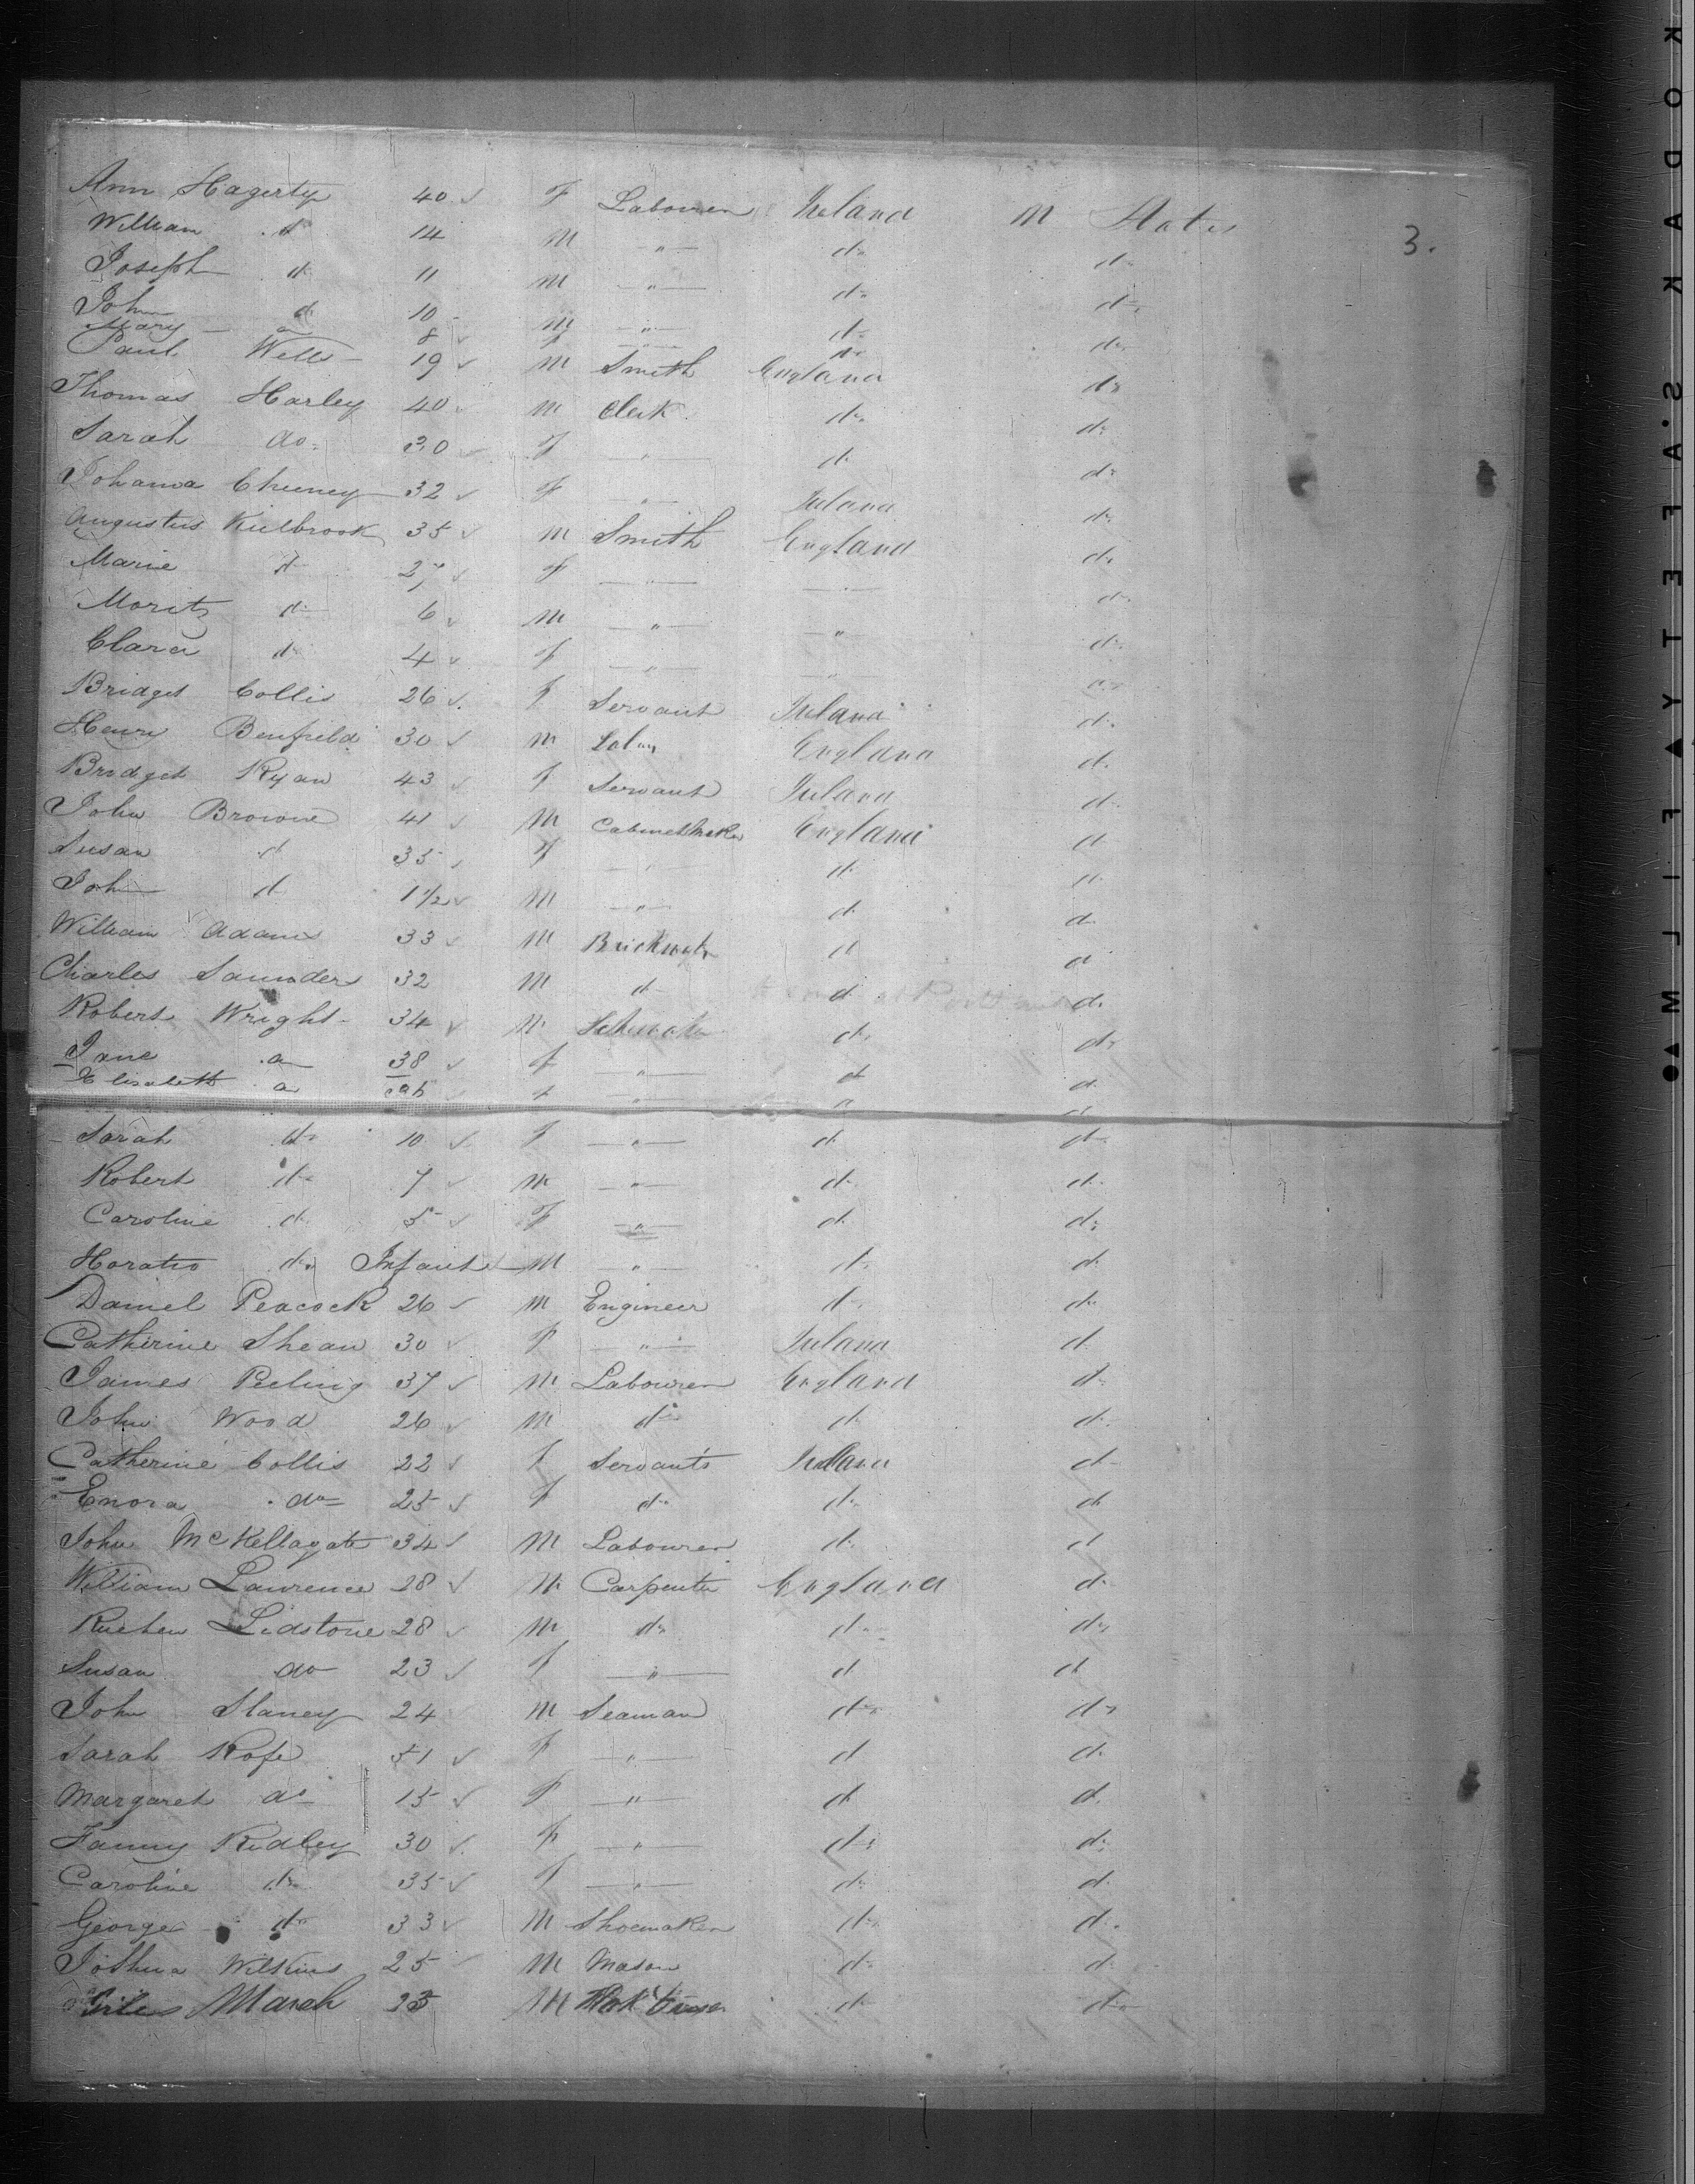 3.
Ann Hagerty 40 F Labourer Ireland M States
William d 14 M " do do
Joseph d 11 M " do do
John d 10 M " do do
Mary d 8 F " do
Paul Wells 19 M Smith England do
Thomas Harley 40 M Clerk do do
Sarah do 30 F " d do
Johanna Cheeney 32 F " Ireland do
Augustus Kielbrook 35 M Smith England do
Marie d 27 F " " do
Moritz d 6 M " " do
Clara d 4 F " " do
Bridget Collis 26 F Servant Ireland do
Henry Benfield 30 M Labr England do
Bridget Ryan 43 F Servant Ireland do
John Browne 41 M Cabinet Maker England d
Susan d 35 F " d d
John d 1 1/2 M " d d
William Adams 33 M d d
Charles Saunders 32 M d d d
Robert Wright 34 M do do
Jane d 38 F " d d
Elizabeth d F " d d
Sarah do 10 F " d do
Robert do 7 M " d d
Caroline d 5 F " d do
Horatio do Infant M " d do
Daniel Peacock 26 M Engineer d do
Catherine Shean 30 F " Ireland d
James Peeling 37 M Labourer England do
John Wood 26 M do do do
Catherine Collis 22 F Servants Ireland do
Enora do 25 F do do do
John McKellagate 34 M Labourer do d
William Lawrence 28 M Carpenter England do
Rueben Lidstone 28 M do do do
Susan do 23 F " d d
John Slaney 24 M Seaman do do
Sarah Rofe 51 F " d do
Margaret do 15 F " d d
Fanny Ridley 30 F " do do
Caroline do 35 F " do do
George do 33 M Shoemaker do do
Joshua Wilkins 25 M Mason do do
March M d do
KODAK S.AFETY FILM